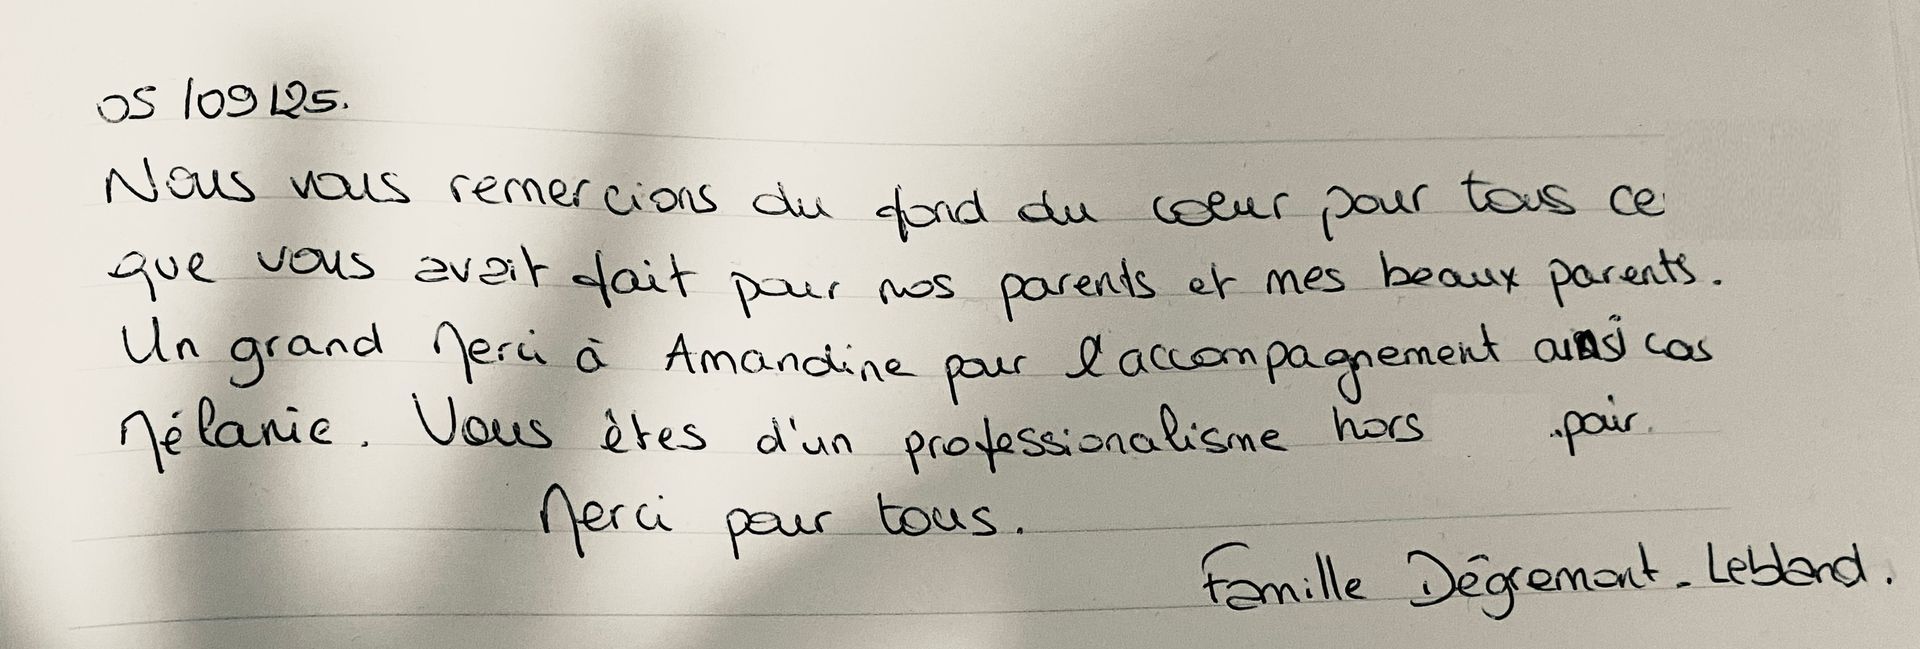 05/09/25.
Nous vous remercions du fond du coeur pour tous ce
que vous avait fait pour nos parents et mes beaux parents.
Un grand Merci à Amandine pour l'accompagnement ainsi cas
Mélanie. Vous êtes d'un professionalisme hors pair.
Merci pour tous.
Famille Dégremont-Lebland.